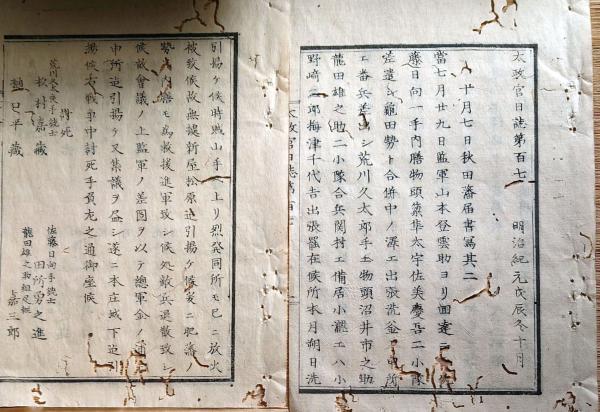 太政官日誌第百七　明治紀元戊辰冬十月
十月七日秋田藩届書寫其二
當七月廿九日監軍山本登雲助ヨリ回達ニ
藤日向一手内膳物頭 太宇佐美慶吾二小隊
差遣シ龜田勢ト合併中ノ澤エ出張洗釜
エ番兵差出シ荒川久太郎手ノ物頭沼井市之助
龍田雄之助二小隊合兵関村エ備居小瀧エハ小
野崎三郎梅津千代吉出張罷在候所本月朔日洗
太政官日誌第百七
引揚ケ候時賊山手ヘ上リ烈発同所モ已ニ放火
被致候故無據新屋松原迄引揚ケ候
勢 内 為救援進軍致シ候処敵兵退散致シ
候故會議ノ上監軍ノ差圖ヲ以テ總軍金ノ浦
中所迠引揚ケ又集議ヲ盡シ遂ニ本庄城下迠引
揚候右戦争中討死手負左之通御座候
討死
荒川久太郎手銃士
松村嘉藏
巳平藏
佐藤日向手銃士
田所勇之進
龍田雄之助組足軽
嘉三郎